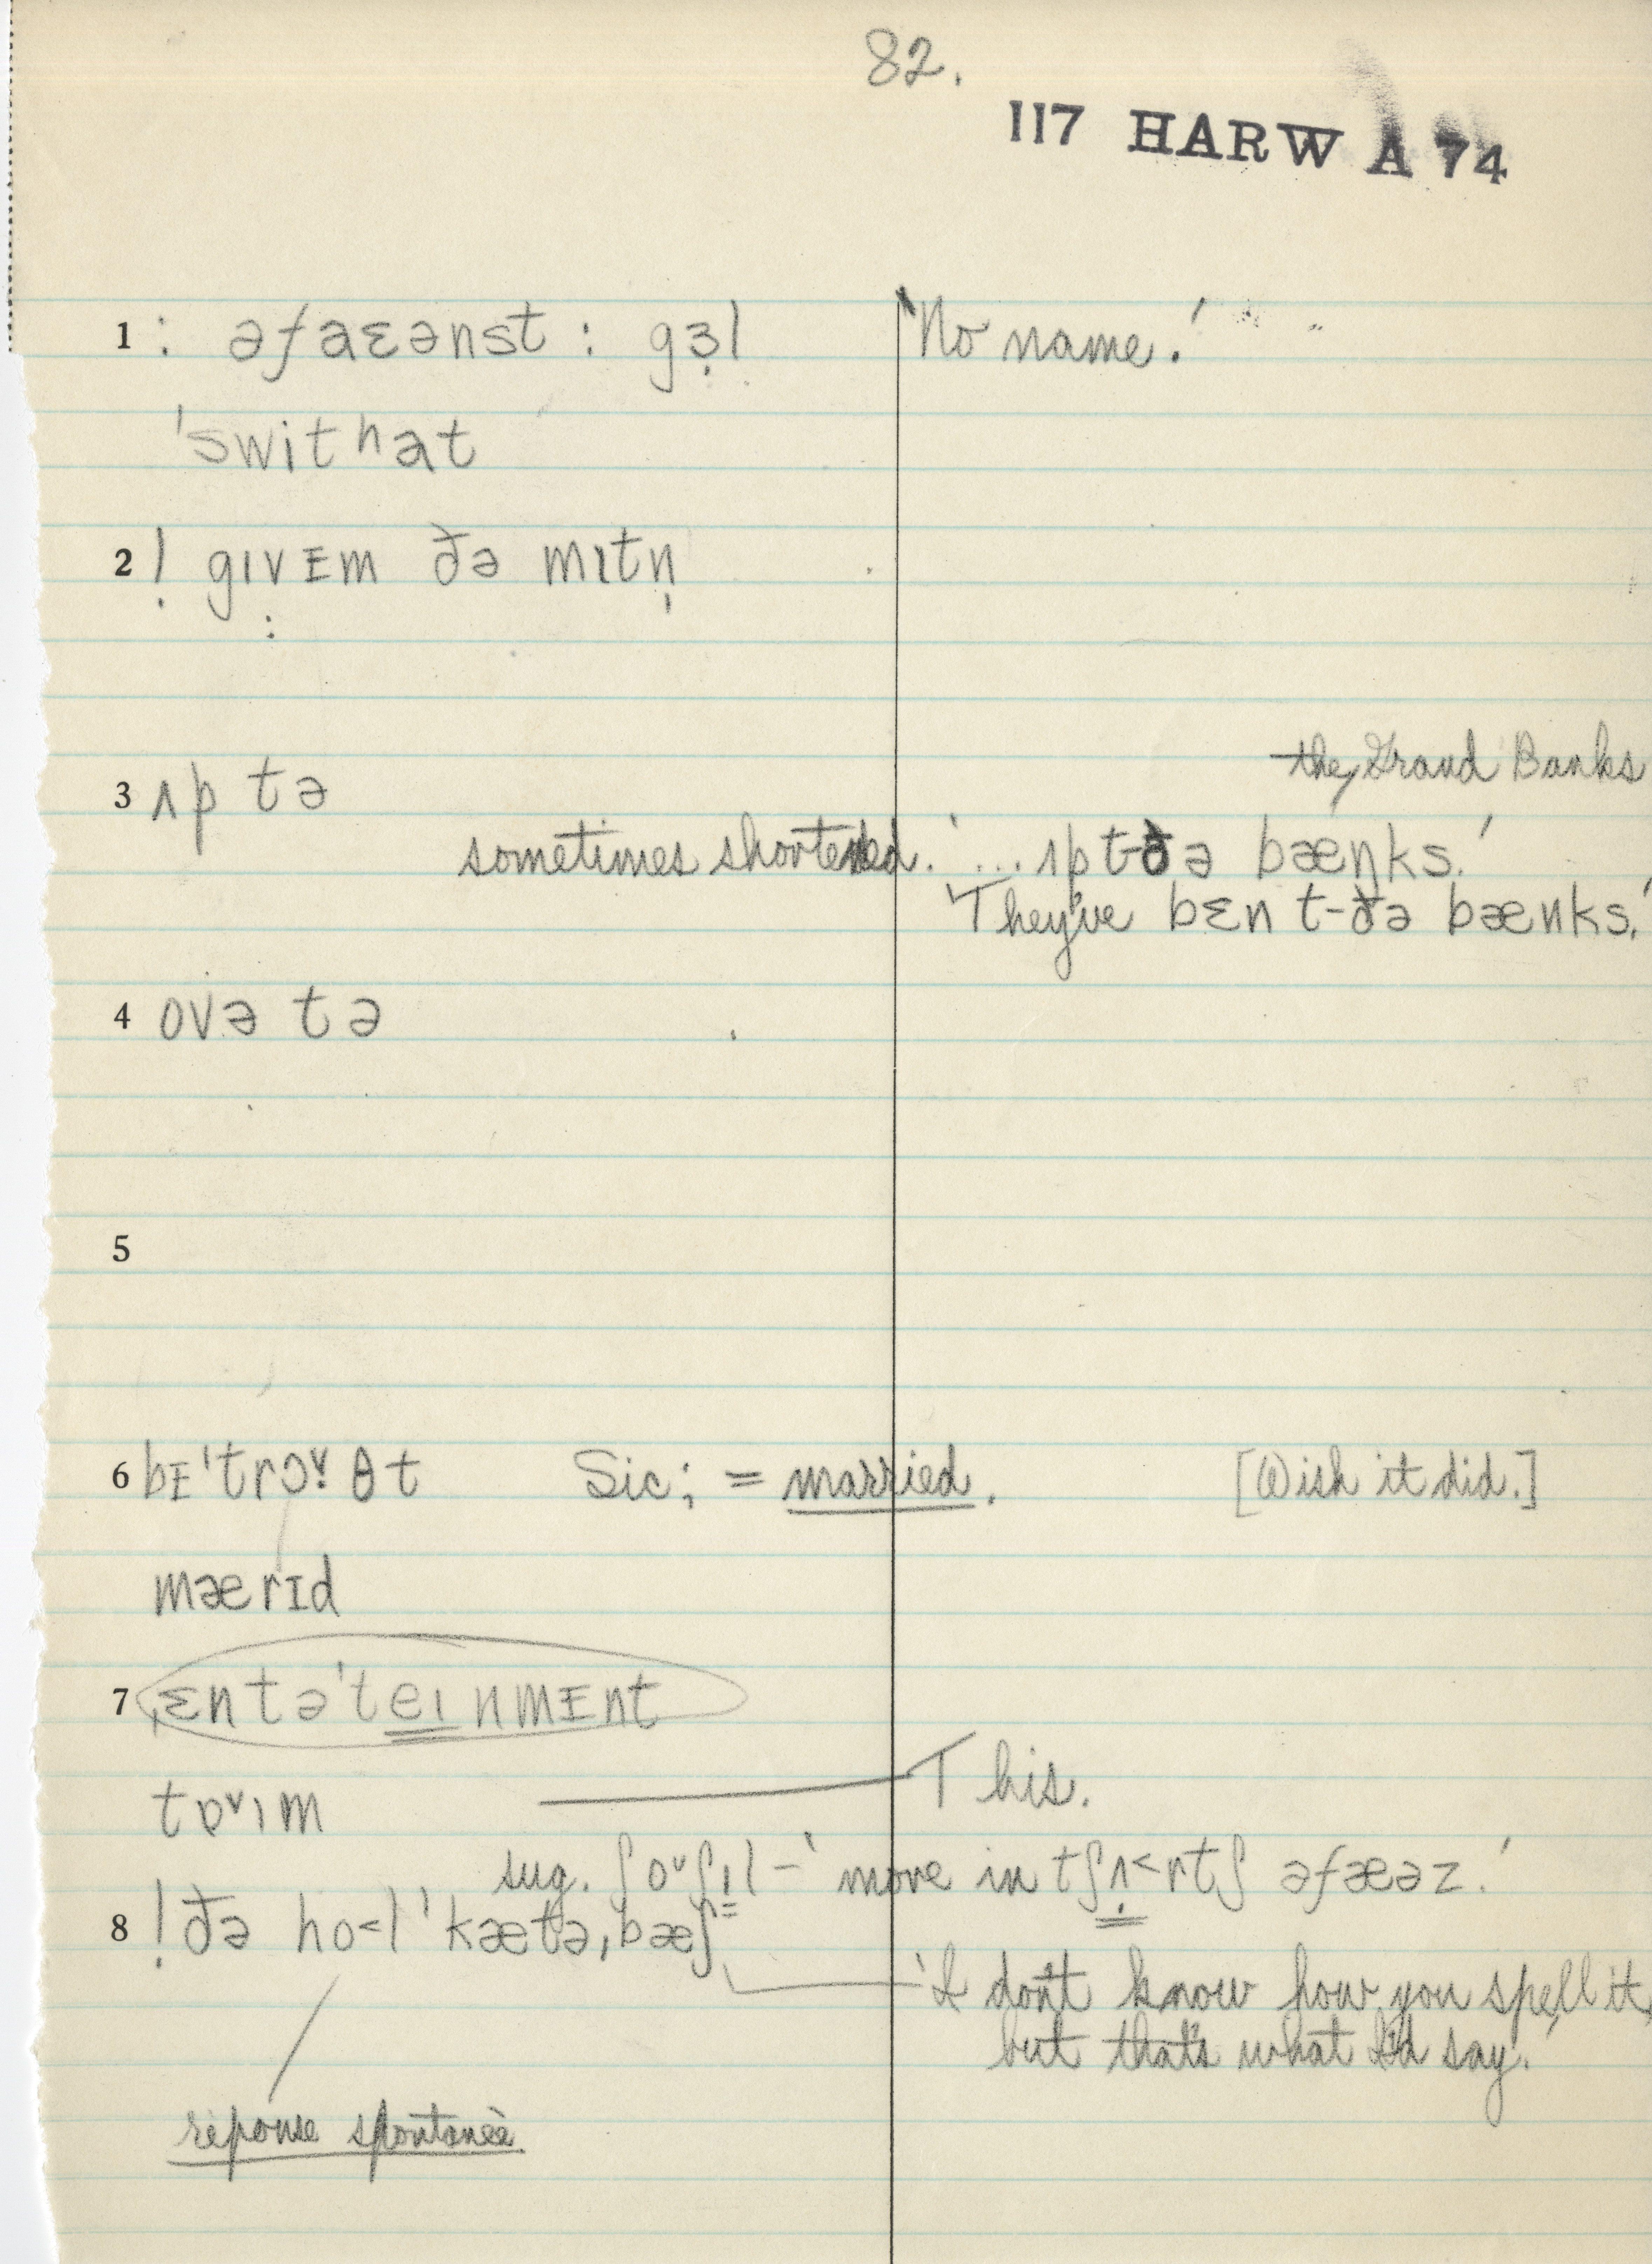 82.
117 HARW A 74
1 : əfaɛənst : gɜ̣l 'No name.'
'swithat
2 ! gɪvᴇm ðə mɪtn̩
3 ʌp tə the Grand Banks
sometimes shortened. '... ʌp t-ðə bæŋks.'
'They've bɛn t-ðə bænks.'
4 ovə tə
5
6 bɪ'trɔᵛθt Sic; = married. [Wish it did.]
mærɪd
7 ˌɛntə'teɪnmᴇnt
tɒᵛɪm This.
sug. ʃoᵛʃɪl – 'move in tʃʌ<rtʃ əfæəz.'
8 ! ðə ho<l 'kætəˌbæʃ
'I don't know how you spell it,
but that's what I'd say.'
réponse spontanée